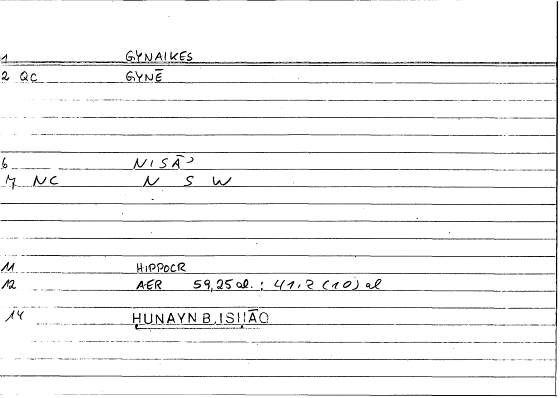 1 GYNAIKES
2 QC GYNĒ
6 NISĀʾ
7 NC N S W
11 HIPPOCR
12 AER 59,25 al. : 41,2 (10) al
14 ḤUNAYN B. ISḤĀQ